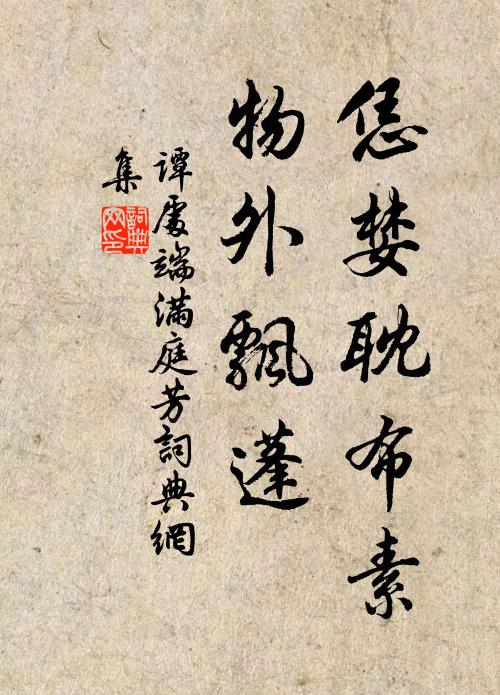 恁婪耽布素
物外飄蓬
譚處端滿庭芳詞典網
集
詞典网印